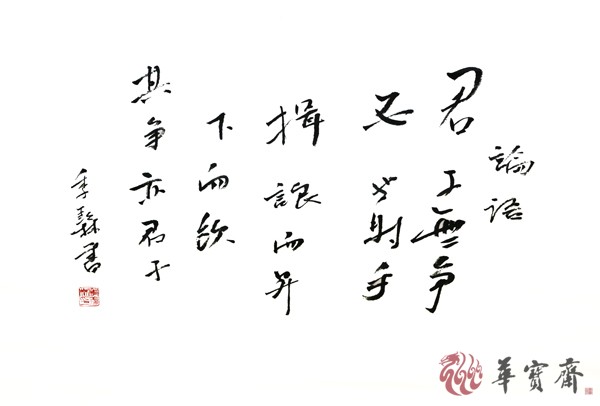 論語
君子無争
必也射乎
揖讓而升
下而飲
其争亦君子
季 書
華寶齋